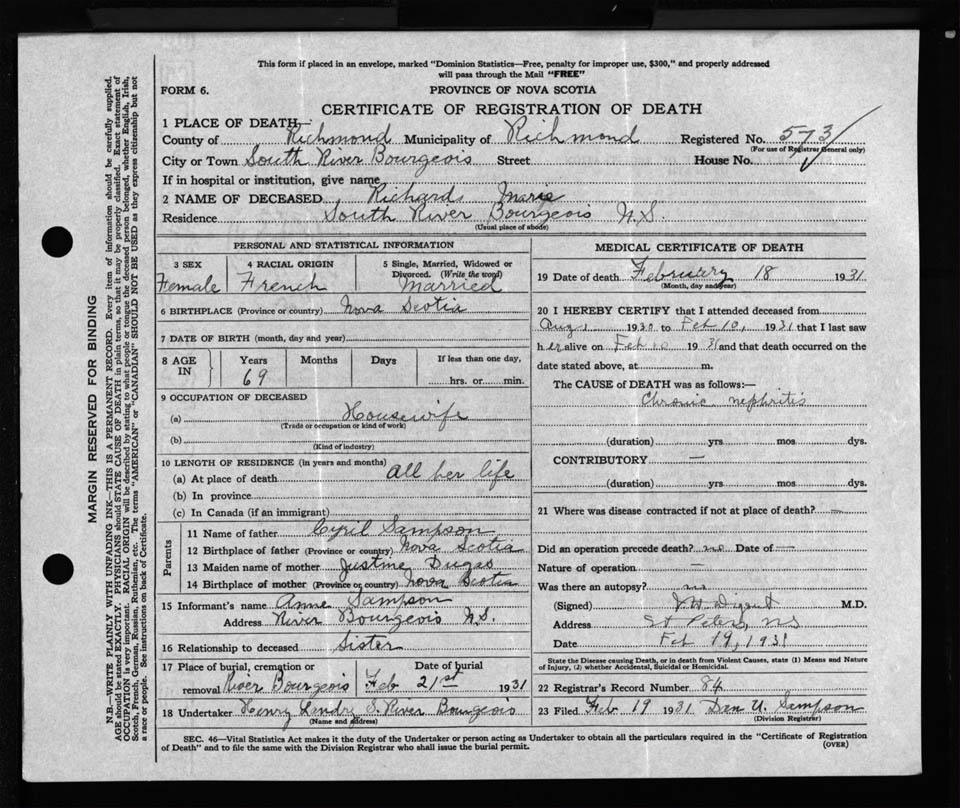 This form if placed in an envelope, marked "Dominion Statistics—Free, penalty for improper use, $300," and properly addressed
will pass through the Mail "FREE"
FORM 6. PROVINCE OF NOVA SCOTIA
CERTIFICATE OF REGISTRATION OF DEATH
1 PLACE OF DEATH
County of Richmond Municipality of Richmond Registered No. 573
(For use of Registrar General only)
City or Town South River Bourgeois Street House No.
If in hospital or institution, give name
2 NAME OF DECEASED Richards Marie
Residence South River Bourgeois N.S.
(Usual place of abode)
PERSONAL AND STATISTICAL INFORMATION
3 SEX 4 RACIAL ORIGIN 5 Single, Married, Widowed or
Divorced. (Write the word)
Female French Married
6 BIRTHPLACE (Province or country) Nova Scotia
7 DATE OF BIRTH (month, day and year)
8 AGE IN Years Months Days If less than one day,
69 hrs. or min.
9 OCCUPATION OF DECEASED
(a) Housewife
(Trade or occupation or kind of work)
(b)
(Kind of industry)
10 LENGTH OF RESIDENCE (in years and months)
(a) At place of death all her life
(b) In province
(c) In Canada (if an immigrant)
Parents
11 Name of father Cyril Sampson
12 Birthplace of father (Province or country) Nova Scotia
13 Maiden name of mother Justine Dugas
14 Birthplace of mother (Province or country) Nova Scotia
15 Informant's name Anne Sampson
Address River Bourgeois N.S.
16 Relationship to deceased Sister
17 Place of burial, cremation or Date of burial
removal River Bourgeois Feb 21st 1931
18 Undertaker Henry Landry S. River Bourgeois
(Name and address)
MEDICAL CERTIFICATE OF DEATH
19 Date of death February 18 1931
(Month, day and year)
20 I HEREBY CERTIFY that I attended deceased from
Aug, 1930 to Feb 10, 1931 that I last saw
her alive on Feb 10 1931 and that death occurred on the
date stated above, at m.
The CAUSE of DEATH was as follows:—
Chronic nephritis
(duration) yrs mos dys.
CONTRIBUTORY —
(duration) yrs mos dys.
21 Where was disease contracted if not at place of death? —
Did an operation precede death? no Date of —
Nature of operation —
Was there an autopsy? no
(Signed) M.D.
Address St Peters, NS
Date Feb 19, 1931
State the Disease causing Death, or in death from Violent Causes, state (1) Means and Nature
of Injury, (2) whether Accidental, Suicidal or Homicidal.
22 Registrar's Record Number 84
23 Filed Feb 19 1931 Dan U. Sampson
(Division Registrar)
SEC. 46—Vital Statistics Act makes it the duty of the Undertaker or person acting as Undertaker to obtain all the particulars required in the "Certificate of Registration
of Death" and to file the same with the Division Registrar who shall issue the burial permit. (OVER)
MARGIN RESERVED FOR BINDING
N.B—WRITE PLAINLY WITH UNFADING INK—THIS IS A PERMANENT RECORD. Every item of information should be carefully supplied.
AGE should be stated EXACTLY. PHYSICIANS should STATE CAUSE OF DEATH in plain terms, so that it may be properly classified. Exact statement of
OCCUPATION is very important. RACIAL ORIGIN will be described by stating to what people or tongue the deceased person belonged, whether English, Irish,
Scotch, French, German, Russian, Ruthenian, etc. The terms "AMERICAN" or "CANADIAN" SHOULD NOT BE USED as they express citizenship but not
a race or people. See instructions on back of Certificate.